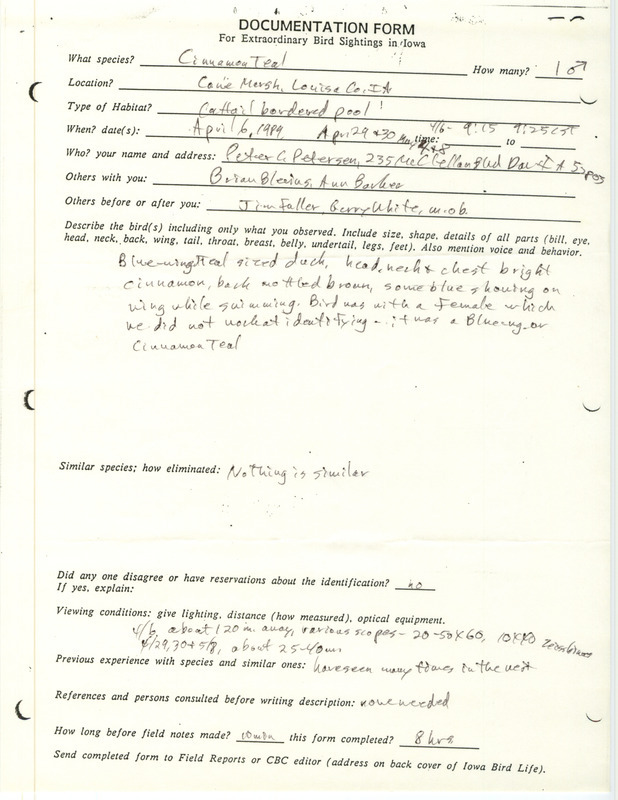 DOCUMENTATION FORM
For Extraordinary Bird Sightings in Iowa
What species? Cinnamon Teal How many? 1 ♂
Location? Cone Marsh, Louisa Co, IA
Type of Habitat? Cattail bordered pool
When? date(s): April 6, 1989 Apr 29 & 30 May time: 4/6 - 9:15 to 9:25 CST
Who? your name and address: Peter C. Petersen, 235 McClellan Blvd Dav IA
Others with you: Brian Blevins, Ann Barker
Others before or after you: Jim Fuller, Gerry White, m.ob.
Describe the bird(s) including only what you observed. Include size, shape, details of all parts (bill, eye,
head, neck, back, wing, tail, throat, breast, belly, undertail, legs, feet). Also mention voice and behavior.
Blue-winged Teal sized duck, head, neck & chest bright
cinnamon, back mottled brown, some blue showing on
wing while swimming. Bird was with a female which
we did not work at identifying - it was a Bluewing or
Cinnamon Teal
Similar species; how eliminated: Nothing is similar
Did any one disagree or have reservations about the identification? no
If yes, explain:
Viewing conditions: give lighting, distance (how measured), optical equipment.
4/6 about 120 m. away, various scopes - 20-50X60, 10X40 Zeiss
4/29,30 & 5/8, about 25-40m
Previous experience with species and similar ones: have seen many times in the west
References and persons consulted before writing description: none needed
How long before field notes made? 10 min this form completed? 8 hrs
Send completed form to Field Reports or CBC editor (address on back cover of Iowa Bird Life).